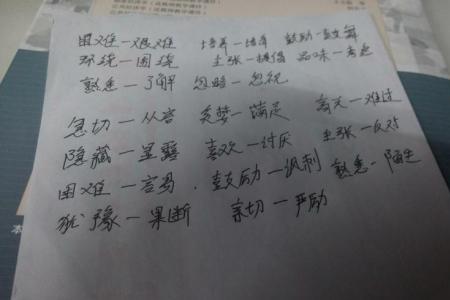 困难—艰难 培养—培育 鼓励—鼓舞
环绕—围绕 主张—提倡 品味—
熟悉—了解 忽略—忽视
急切—从容 —满足 —难过
隐藏—显露 喜欢—讨厌 主张—反对
困难—容易 鼓励—讽刺 熟悉—陌生
犹豫—果断 亲切—严励